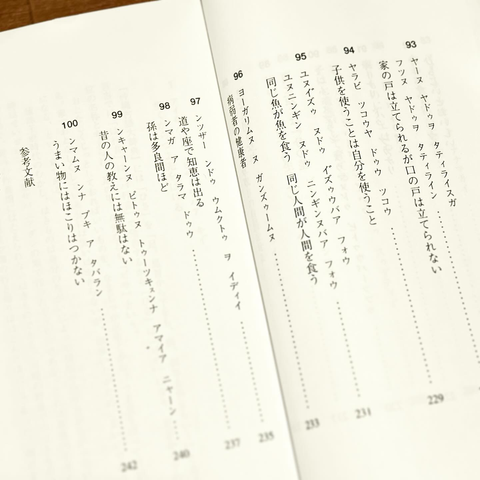 93
ヤーヌ ヤドゥヲ タティライスガ
フツヌ ヤドゥヲ タティライン
家の戸は立てられるが口の戸は立てられない
229
94
ヤラビ ツコウヤ ドゥウ ツコウ
子供を使うことは自分を使うこと
231
95
ユヌイズゥ ヌドゥ イズゥウバア フォウ
ユヌニンギン ヌドゥ ニンギンヌバア フォウ
同じ魚が魚を食う 同じ人間が人間を食う
233
96
ヨーガリムヌ ヌ ガンズゥームヌ
病弱者の健康者
235
97
ンツザー ンドゥ ウムクトゥ ヲ イディイ
道や座で知恵は出る
237
98
ンマガ ア タラマ ドゥウ
孫は多良間ほど
240
99
ンキャーンヌ ピトゥヌ トゥーツキェンナ アマイア ニャーン
昔の人の教えには無駄はない
242
100
ンマムヌ ンナ プキ ア タバラン
うまい物にはほこりはつかない
参考文献